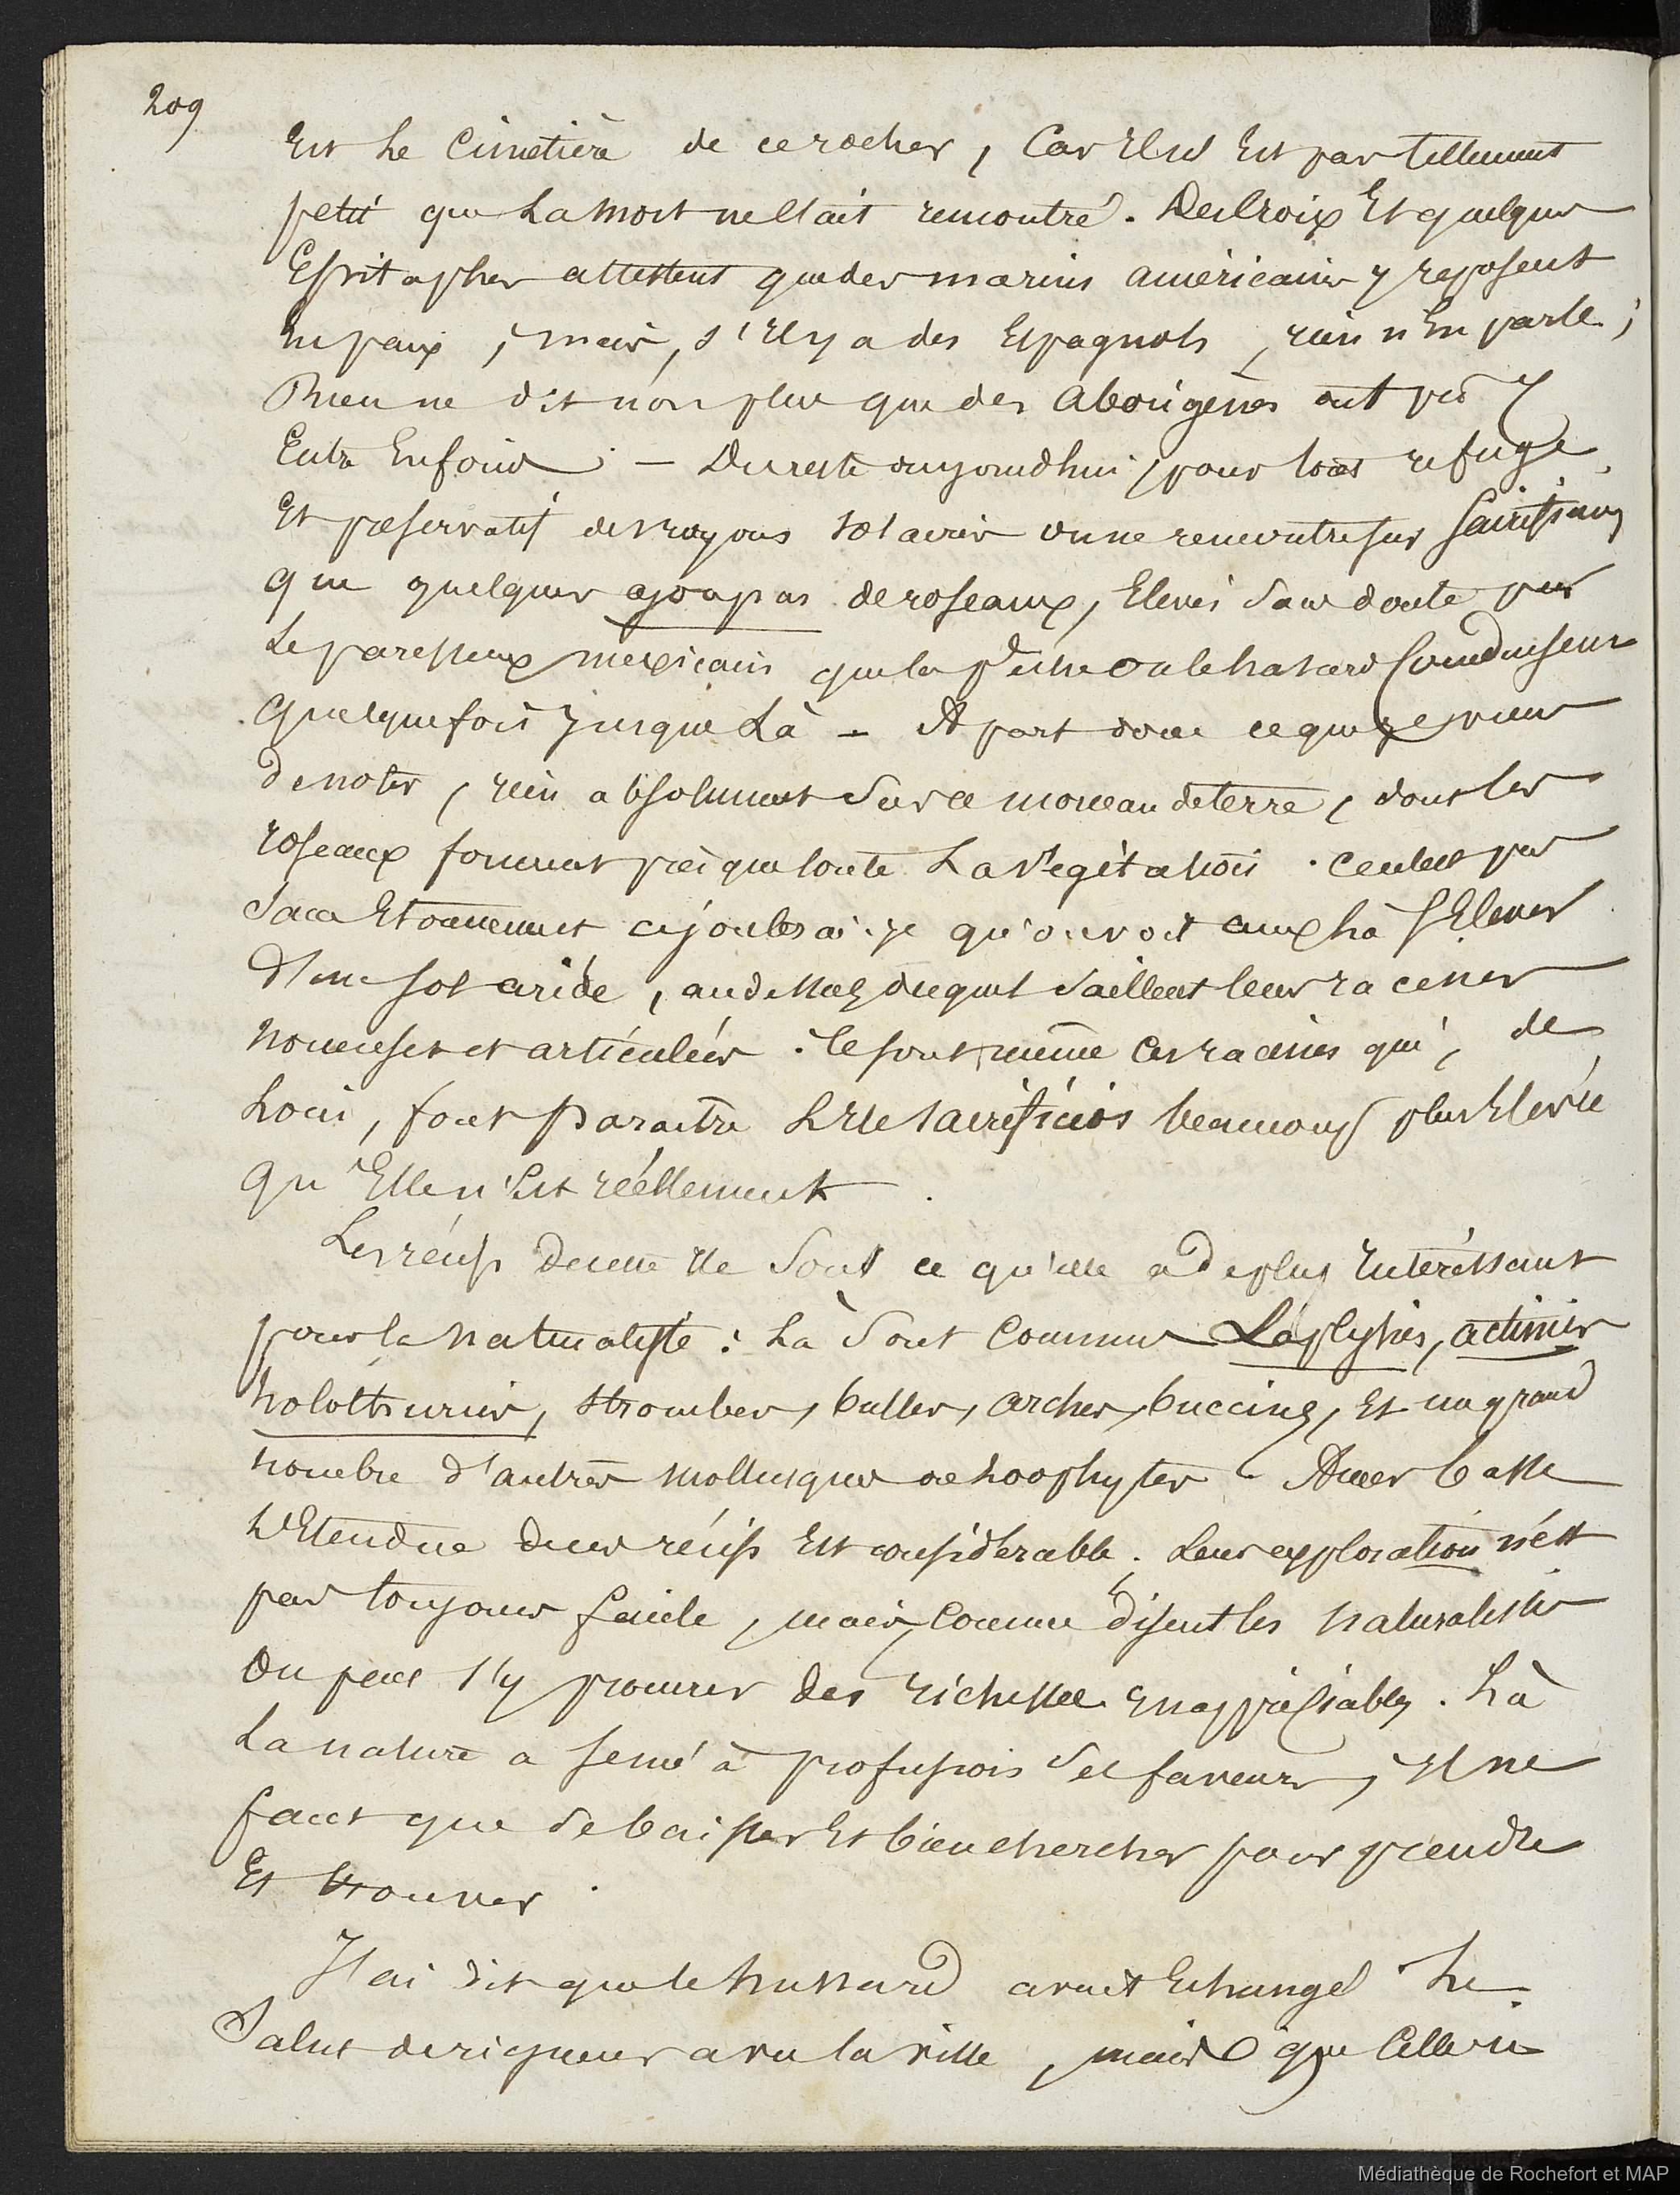 209
Est Le Cimetière de ce rocher, Car Il n'Est pas tellement
petit que La mort ne l'ait rencontré. Des Croix Et quelques
Epitaphes attestent que des marins américains y reposent
En paix, mais, s'Il y a des Espagnols, rien n'En parle;
Rien ne dit non plus que des aborigènes ont pû y
Etre Enfouis. — Du reste aujourd'hui, pour tout refuge
Et préservatif des rayons solaires on ne rencontre sur Sacrificios
que quelques ajoupas de roseaux, Elevés Sans doute par
Le paresseux mexicain que la Pêche ou le hasard Conduisent
quelquefois jusque Là — A part donc ce que je viens
de noter, rien absolument Sur ce morceau de terre, dont les
roseaux forment presque toute La végétation. Ce n'est pas
Sans Etonnement ajouterai-je qu'on voit ceux là s'Elever
d'un sol aride, au dessus duquel saillent leurs racines
noueuses et articulées. Ce sont même Ces racines qui, de
Loin, font Paraître L'Ile Sacrificios beaucoup plus Elevée
qu'Elle n'Est réellement.
Les récifs de cette Ile Sont ce qu'elle a de plus Intéressant
pour le naturaliste: Là Sont Communs Laplysies, actinies
holothuries, strombes, bulles, arches, buccins, Et un grand
nombre d'autres mollusques ou zoophytes. A mer basse
L'Etendue de ces récifs Est considérable. Leur exploration n'est
pas toujours facile, mais, Comme disent les naturalistes
On peut s'y procurer des richesses Inappréciables. Là
La nature a semé à profusion Ses faveurs, Il ne
faut que se baisser Et bien chercher pour prendre
Et trouver.
J'ai dit que le hussard avait Echangé Le
Salut de rigueur avec la ville, mais que Celle-ci